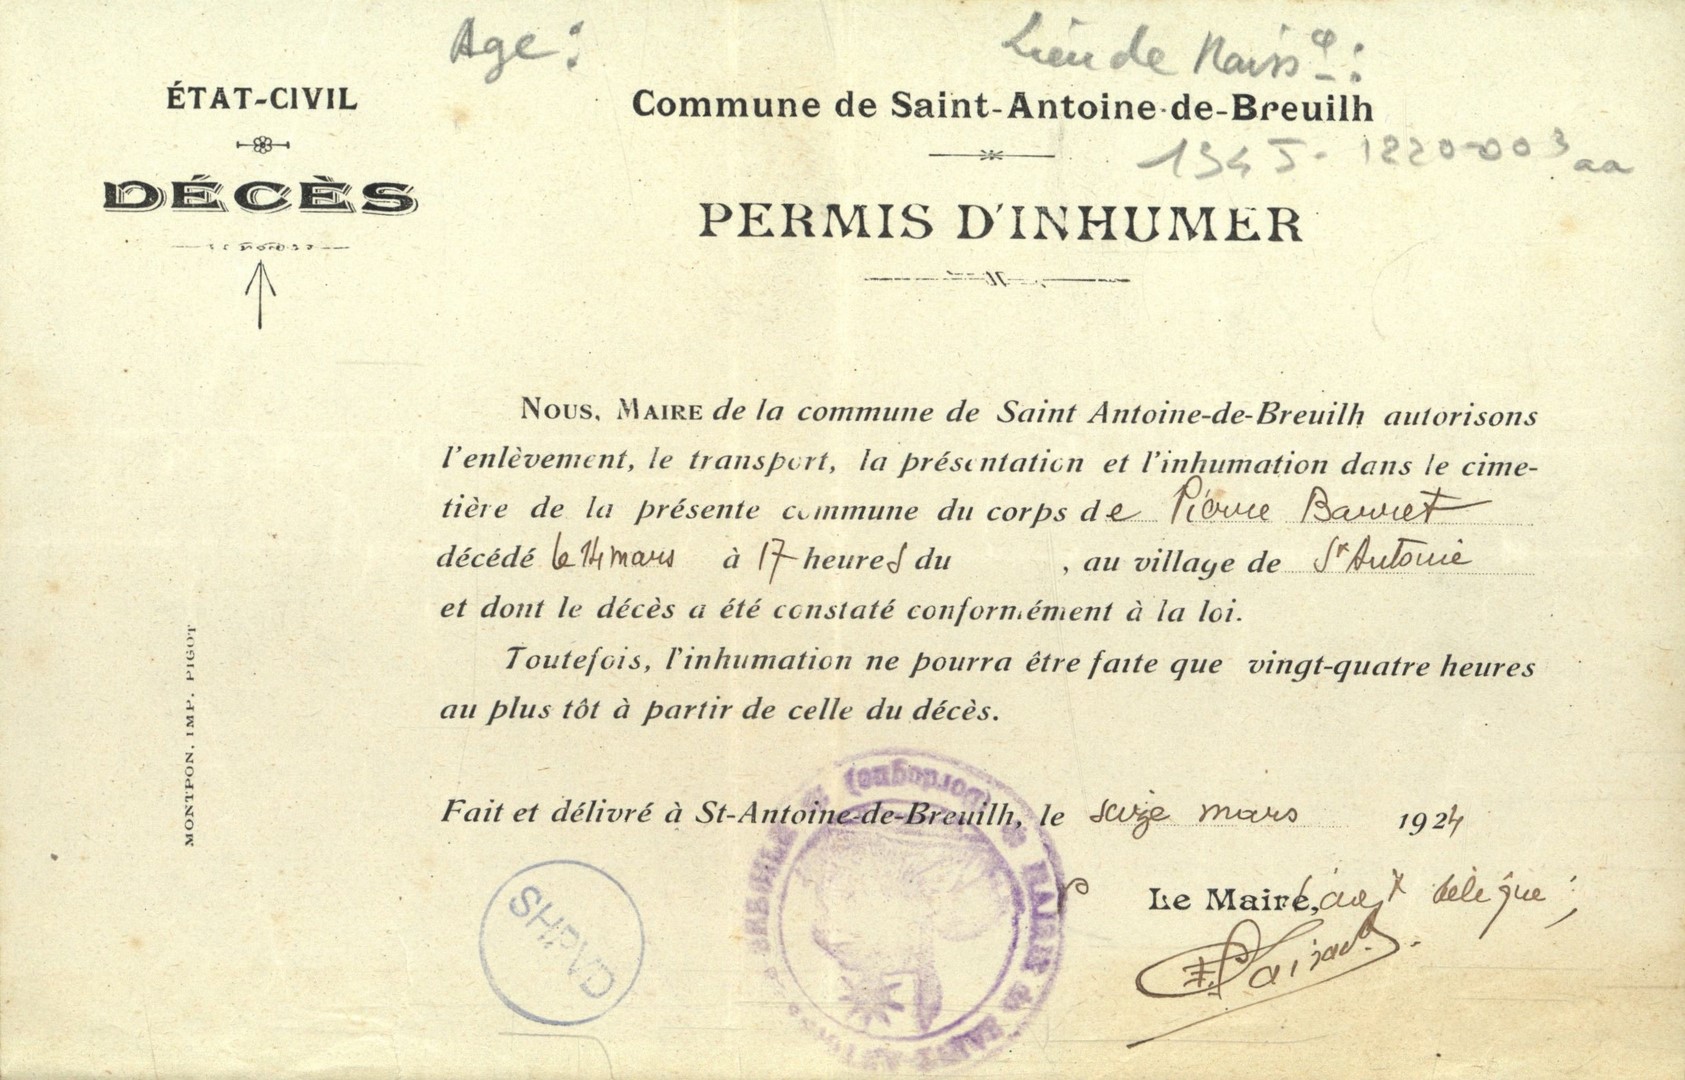 Age :
Lieu de Naissce :
ÉTAT-CIVIL
Commune de Saint-Antoine-de-Breuilh
1345-1220-003 aa
DÉCÈS
PERMIS D'INHUMER
NOUS, MAIRE de la commune de Saint Antoine-de-Breuilh autorisons
l'enlèvement, le transport, la présentation et l'inhumation dans le cime-
tière de la présente commune du corps de Pierre Barret
décédé le 14 mars à 17 heures du , au village de St Antoine
et dont le décès a été constaté conformément à la loi.
Toutefois, l'inhumation ne pourra être faite que vingt-quatre heures
au plus tôt à partir de celle du décès.
Fait et délivré à St-Antoine-de-Breuilh, le seize mars 1924
Le Maire, délégué :
MONTPON. IMP. PIGOT
SHPVD
MAIRIE de SAINT-ANTOINE (Dordogne)